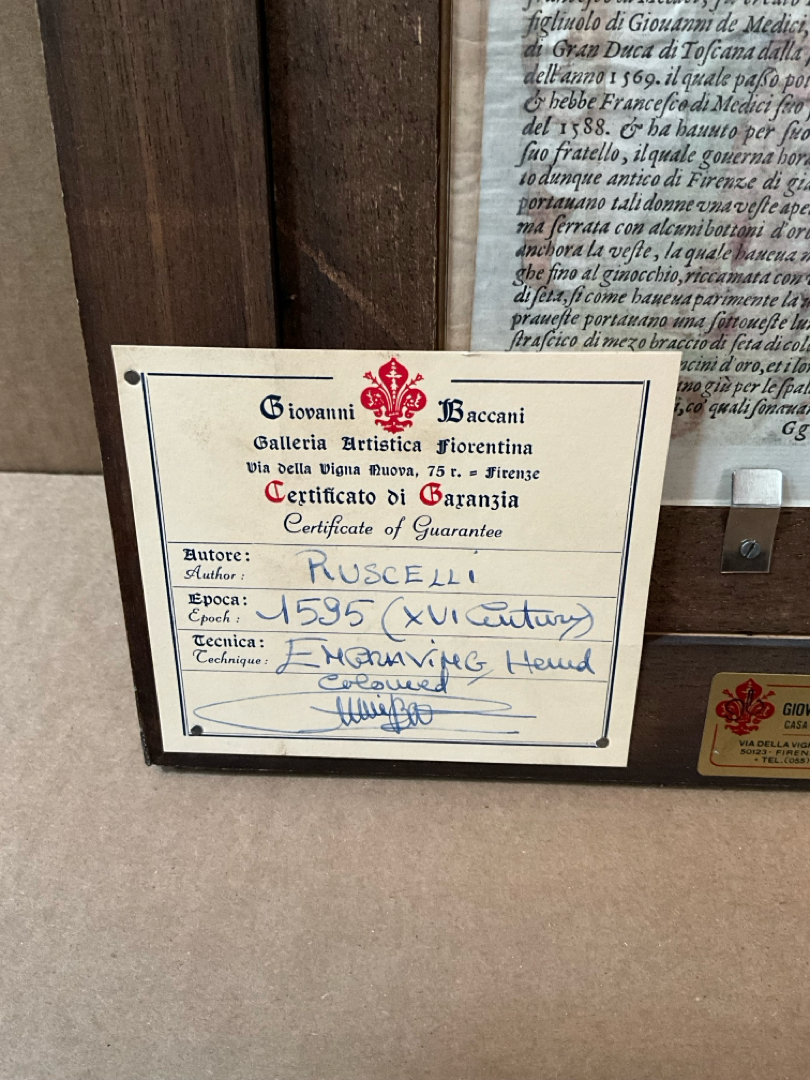 figliuolo di Giouanni de Medici,
di Gran Duca di Toſcana dalla
dell'anno 1569. il quale paſſò
& hebbe Franceſco di Medici ſuo
del 1588. & ha hauuto per ſuo
ſuo fratello, ilquale gouerna hora
to dunque antico di Firenze di
portauano tali donne vna veſte
ma ſerrata con alcuni bottoni d'oro
anchora la veſte, la quale haueua
ghe fino al ginocchio, riccamata con
di ſeta, ſi come haueua parimente la
praueſte portauano una ſottoueſte
ſtraſcico di mezo braccio di ſeta di
ncini d'oro, et i
no giù per le ſpal
, co' quali ſonaua
Gg
Giovanni Baccani
Galleria Artistica Fiorentina
Via della Vigna Nuova, 75 r. = Firenze
Certificato di Garanzia
Certificate of Guarantee
Autore: RUSCELLI
Author:
Epoca: 1595 (XVI Century)
Epoch:
Tecnica: ENGRAVING, Hand
Technique:
Coloured
GIOV
CASA
VIA DELLA VIG
50123 - FIREN
• TEL. (055)